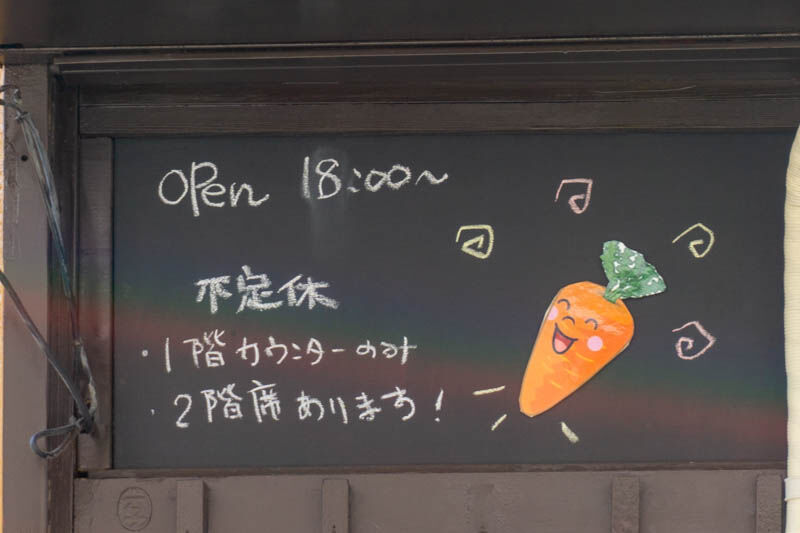 open 18:00〜
不定休
・1階カウンターのみ
・2階席あります!